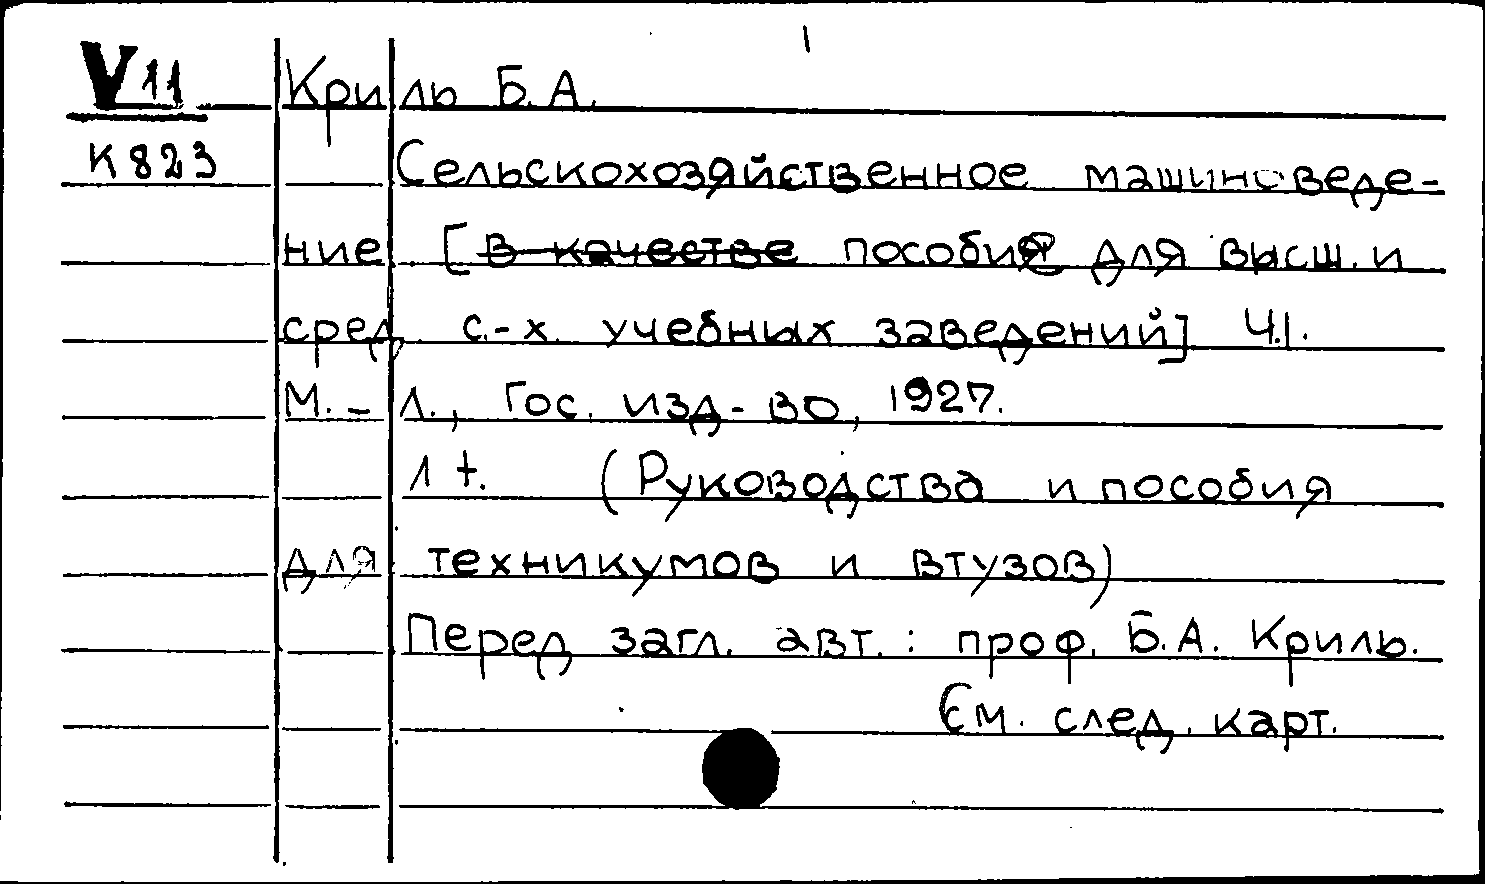 I
V 11 Криль Б.А.
К 823 Сельскохозяйственное машиноведе-
ние [в качестве пособия для высш. и
сред. с.-х. учебных заведений] Ч.I.
М.-Л., Гос. изд-во, 1927.
1 т. (Руководства и пособия
для техникумов и втузов)
Перед загл. авт.: проф. Б.А. Криль.
См. след. карт.